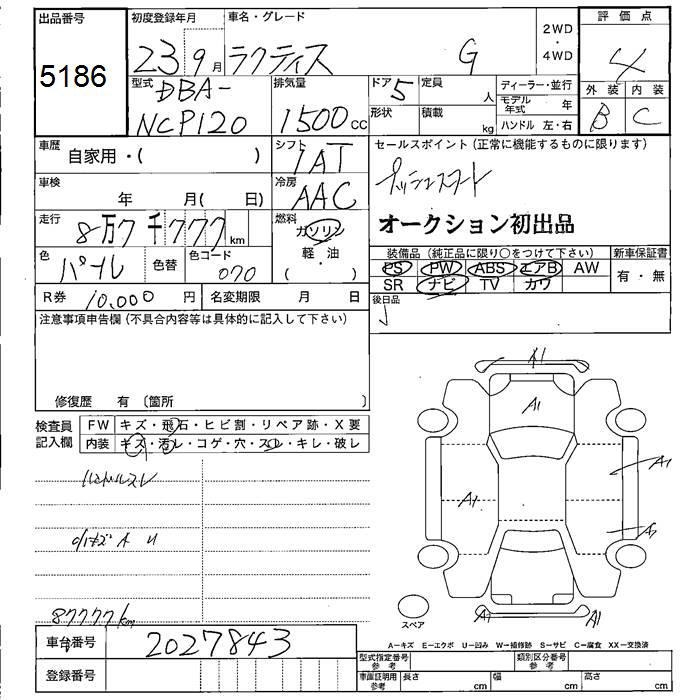 出品番号 初度登録年月 車名・グレード 2WD・4WD 評価点
5186 23 9月 ラクティス G 4
型式 排気量 ドア 5 定員 人 ディーラー・並行 外装 内装
DBA-NCP120 1500cc 形状 積載 kg モデル年式 年 B C
ハンドル 左・右
車歴 自家用・( ) シフト IAT セールスポイント(正常に機能するものに限ります)
車検 年 月( 日) 冷房 AAC プッシュスタート
走行 8万7千777km 燃料 ガソリン・軽油・( ) オークション初出品
色 パール 色替 色コード 070 装備品(純正品に限り○をつけて下さい) 新車保証書
PS PW ABS エアB AW 有・無
SR ナビ TV カワ
R券 10,000円 名変期限 月 日 後日品
注意事項申告欄(不具合内容等は具体的に記入して下さい)
修復歴 有〔箇所 〕
検査員記入欄 FW キズ・飛石・ヒビ割・リペア跡・X要
内装 キズ・汚レ・コゲ・穴・スレ・キレ・破レ
ハンドルスレ
小キズ A U
87777km
A1
A1
A1
A1
A1
A1
A1
スペア
車台番号 2027843
登録番号
A−キズ E−エクボ U−凹み W−補修跡 S−サビ C−腐食 XX−交換済
型式指定番号 参考 類別区分番号 参考
車庫証明用 参考 長さ cm 幅 cm 高さ cm